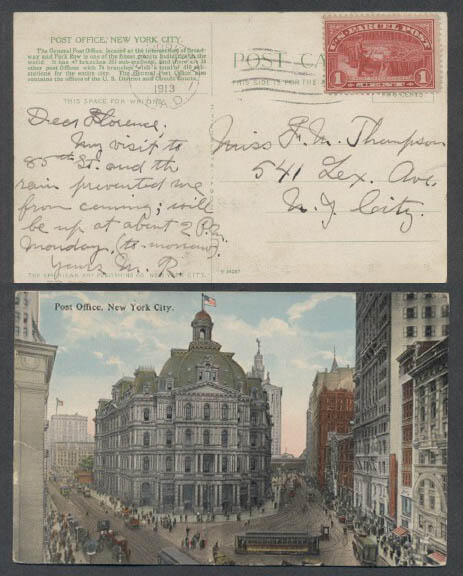 POST OFFICE, NEW YORK CITY.
The General Post Office, located at the intersection of Broad-
way and Park Row is one of the finest public buildings in the
city. It has 47 branches 251 sub-stations, and there are 34
other post Offices with 74 branches with a total of 416 sub-
stations for the entire city. The General Post Office also
contains the offices of the U. S. District and Circuit Courts.
THIS SPACE FOR WRITING
1913
POST CARD
THIS SIDE IS FOR THE
U.S. PARCEL POST
1 1
CENT
Dear Florence,
My visit to
85th St. and the
rain prevented me
from coming; will
be up at about 2 P.M.
Monday, (to-morrow).
Yours M. R.
Miss F. M. Thompson
541 Lex. Ave.
N. Y. City.
THE AMERICAN ART PUBLISHING CO. NEW YORK CITY.
Post Office, New York City.